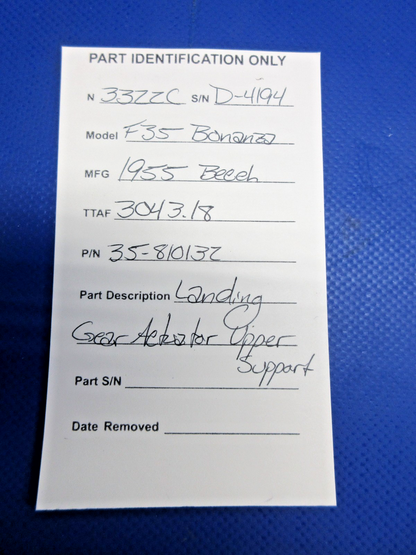 PART IDENTIFICATION ONLY
N 3322C S/N D-4194
Model F35 Bonanza
MFG 1955 Beech
TTAF 3043.18
P/N 35-810132
Part Description Landing
Gear Actuator Upper
Support
Part S/N
Date Removed